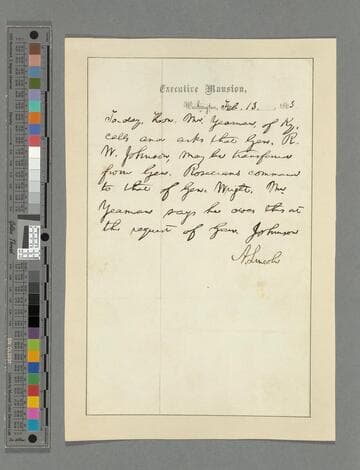 Executive Mansion,
Washington, Feb. 13. 1863
To-day, Hon. Mr. Yeaman, of Ky.
calls and asks that Gen. R.
W. Johnson, may be transferred
from Gen. Rosecrans command
to that of Gen. Wright. Mr.
Yeaman says he does this at
the request of Gen. Johnson
A. Lincoln